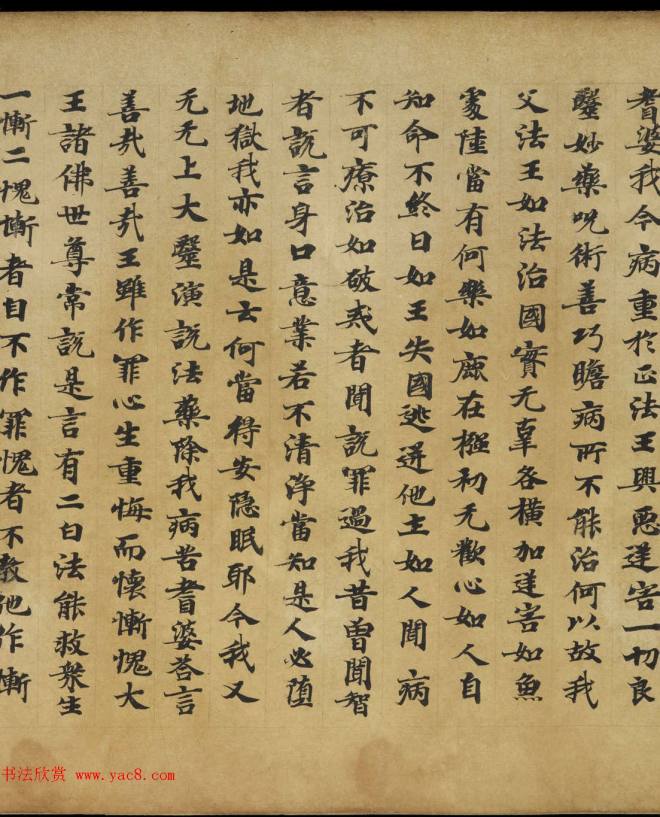 耆婆我今病重於正法王興惡逆害一切良
毉妙藥呪術善巧瞻病所不能治何以故我
父法王如法治國實无辜咎橫加逆害如魚
處陸當有何樂如鹿在摾初无歡心如人自
知命不終日如王失國逃迸他土如人聞病
不可療治如破戒者聞說罪過我昔曾聞智
者說言身口意業若不清淨當知是人必墮
地獄我亦如是云何當得安隱眠耶今我又
无无上大毉演說法藥除我病苦耆婆荅言
善哉善哉王雖作罪心生重悔而懷慚愧大
王諸佛世尊常說是言有二白法能救衆生
一慚二愧慚者自不作罪愧者不教他作慚
书法欣赏 www.yac8.com